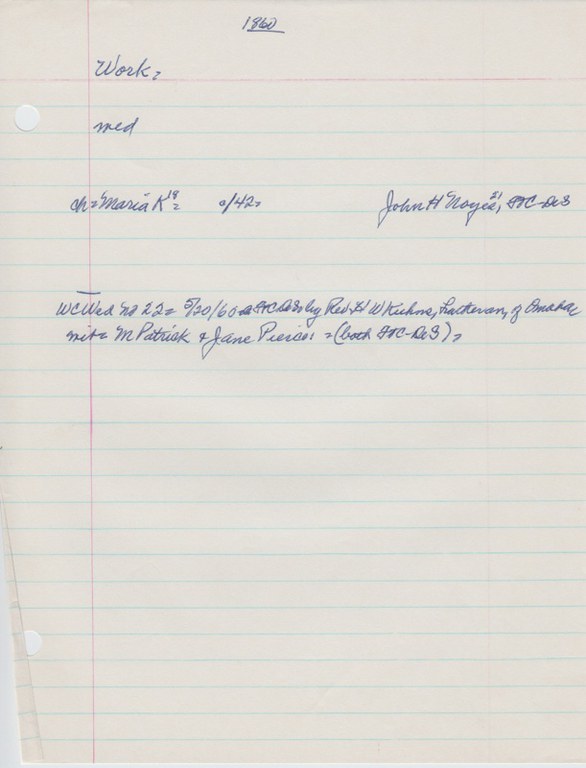 1860
Work=
med
ch= "Maria K 18= c/42= John H "Noyes" 21, FTC-DeS
WC Wed No 22= 5/20/60 FTC DeS by Rev. H W Kuhns, Lutheran, of Omaha
wit= M Patrick & Jane Pierce: = (both FTC-DeS) =